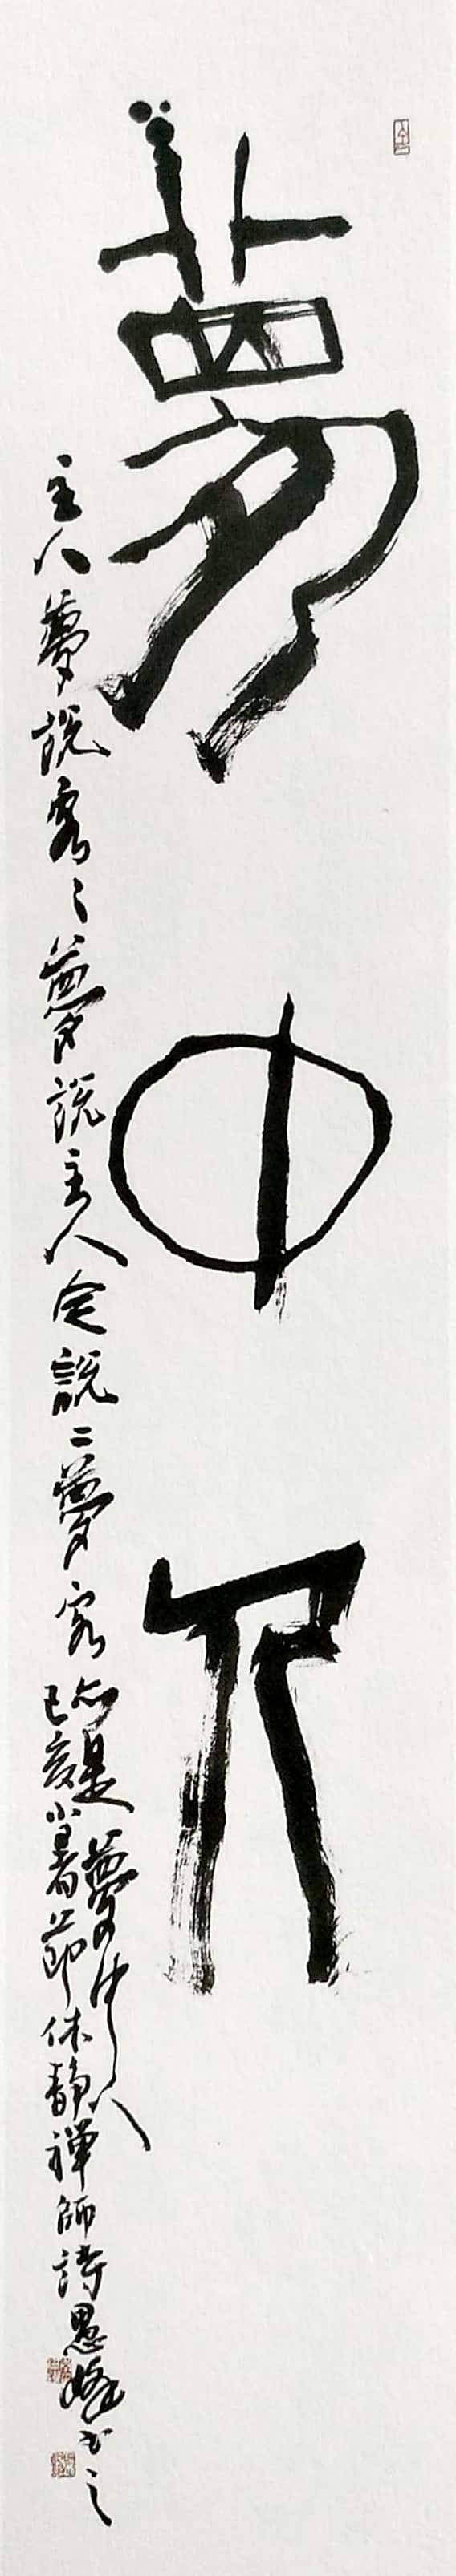 夢中人
主人夢說客〻夢說主人今說二夢客亦是夢中人
己亥小暑節休靜禪師詩愚峰書之